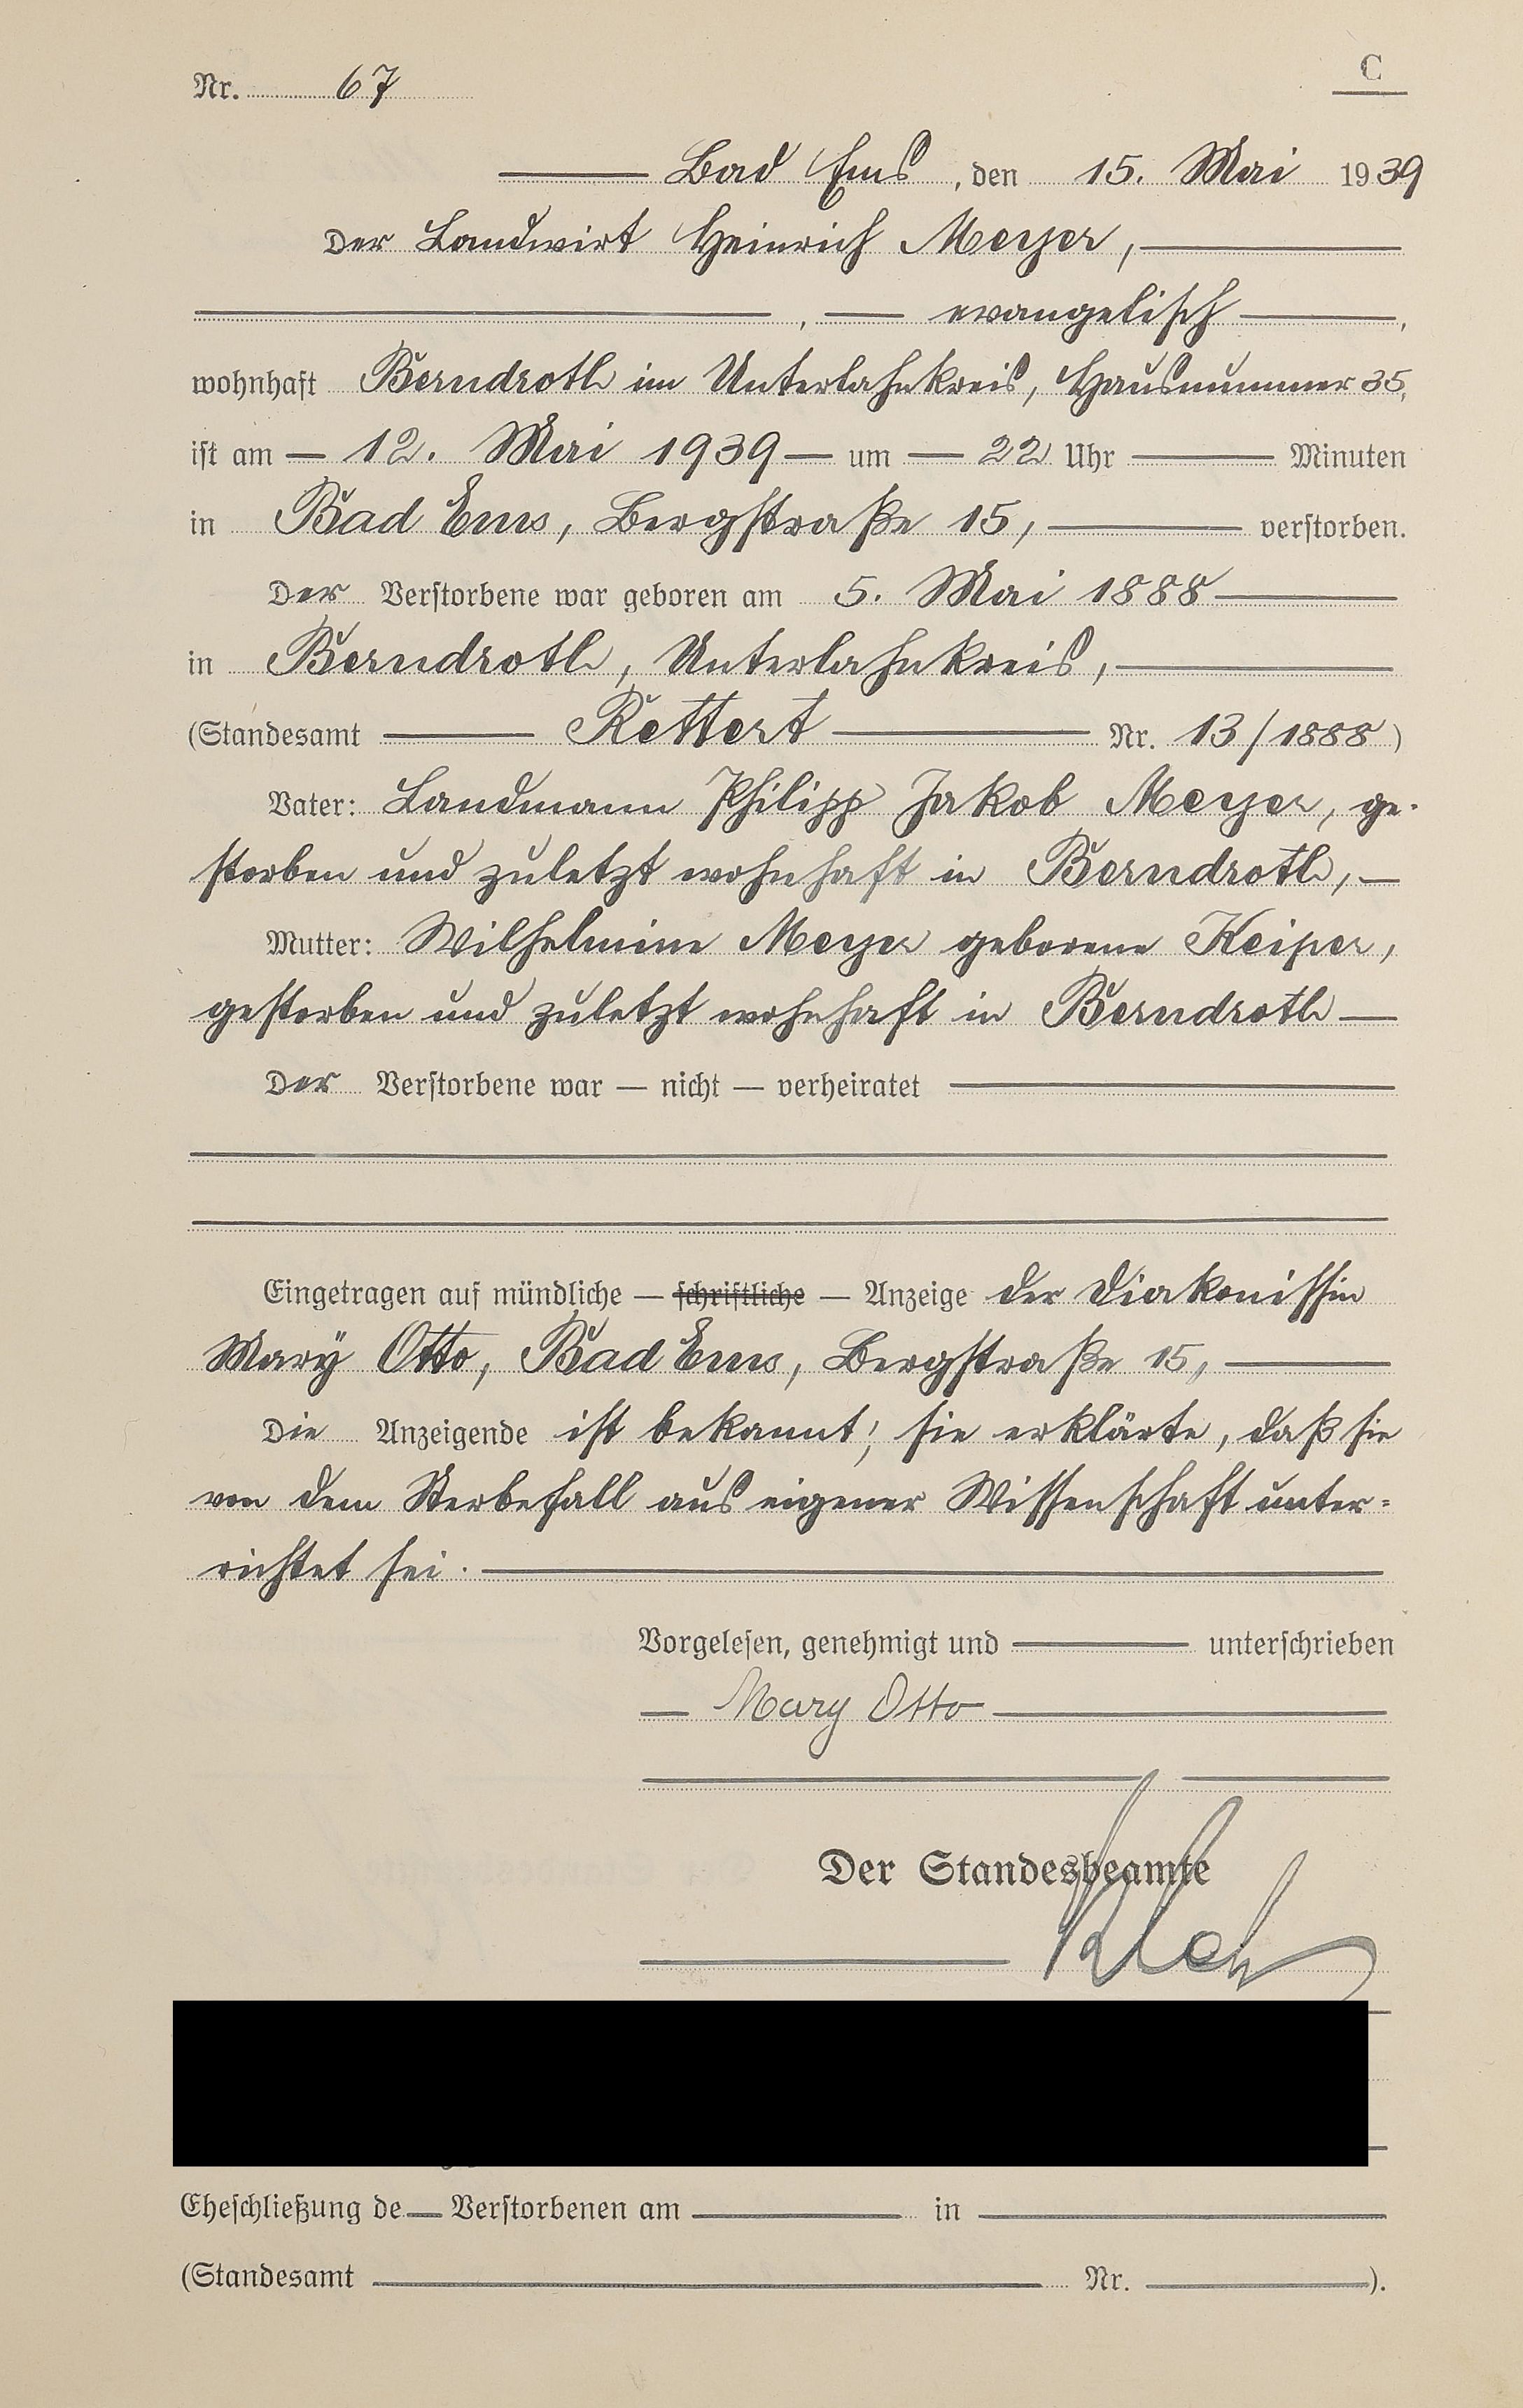 C
Nr. 67
Bad Ems, den 15. Mai 1939
Der Landwirt Heinrich Meyer,
, evangelisch,
wohnhaft Berndroth im Unterlahnkreis, Hausnummer 35,
ist am 12. Mai 1939 um 22 Uhr Minuten
in Bad Ems, Bergstraße 15, verstorben.
Der Verstorbene war geboren am 5. Mai 1888
in Berndroth, Unterlahnkreis,
(Standesamt Rettert Nr. 13/1888)
Vater: Landmann Philipp Jakob Meyer, ge-
storben und zuletzt wohnhaft in Berndroth,
Mutter: Wilhelmine Meyer geborene Keiper,
gestorben und zuletzt wohnhaft in Berndroth
Der Verstorbene war — nicht — verheiratet
Eingetragen auf mündliche — schriftliche — Anzeige der Diakonissin
Mary Otto, Bad Ems, Bergstraße 15,
Die Anzeigende ist bekannt; sie erklärte, daß sie
von dem Sterbefall aus eigener Wissenschaft unter-
richtet sei.
Vorgelesen, genehmigt und unterschrieben
Mary Otto
Der Standesbeamte
Eheschließung de Verstorbenen am in
(Standesamt Nr. ).